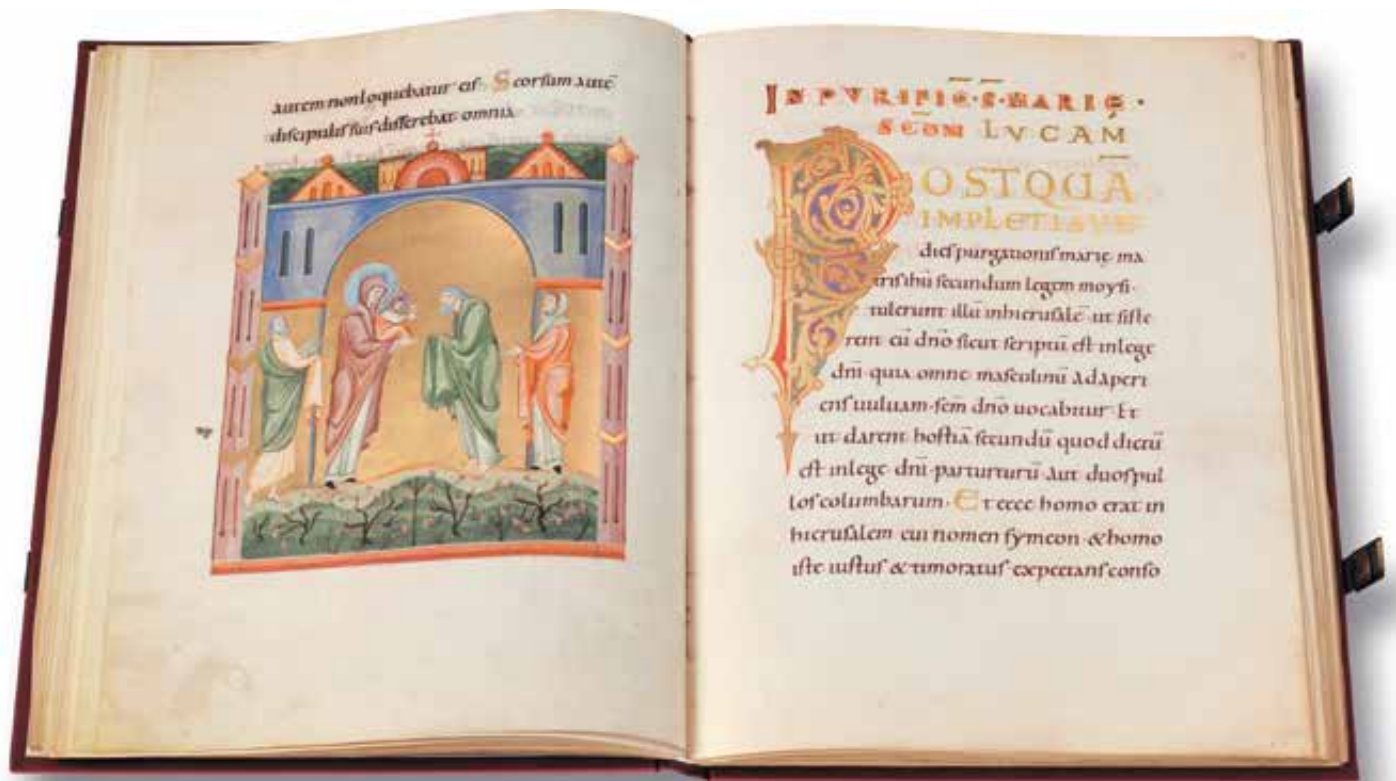 autem non loquebatur eis· Seorsum autē
discipulis suis disserebat omnia
IN PVRIFIC̄·S̄·MARIĘ·
SECDM LVCAM
POSTQUĀ
IMPLETI SVN̄
dies purgationis marię ma
tris ihū secundum legem moysi·
tulerunt illū inhierusalē ut siste
rent eū dn̄o sicut scriptū est inlege
dn̄i· quia omne masculinū adaperi
ens uuluam· sc̄m dn̄o uocabitur· Et
ut darent hostiā secundū quod dictū
est inlege dn̄i· parturturū aut duos pul
los columbarum· Et ecce homo erat in
hierusalem cui nomen symeon· & homo
iste iustus & timoratus· expectans conso